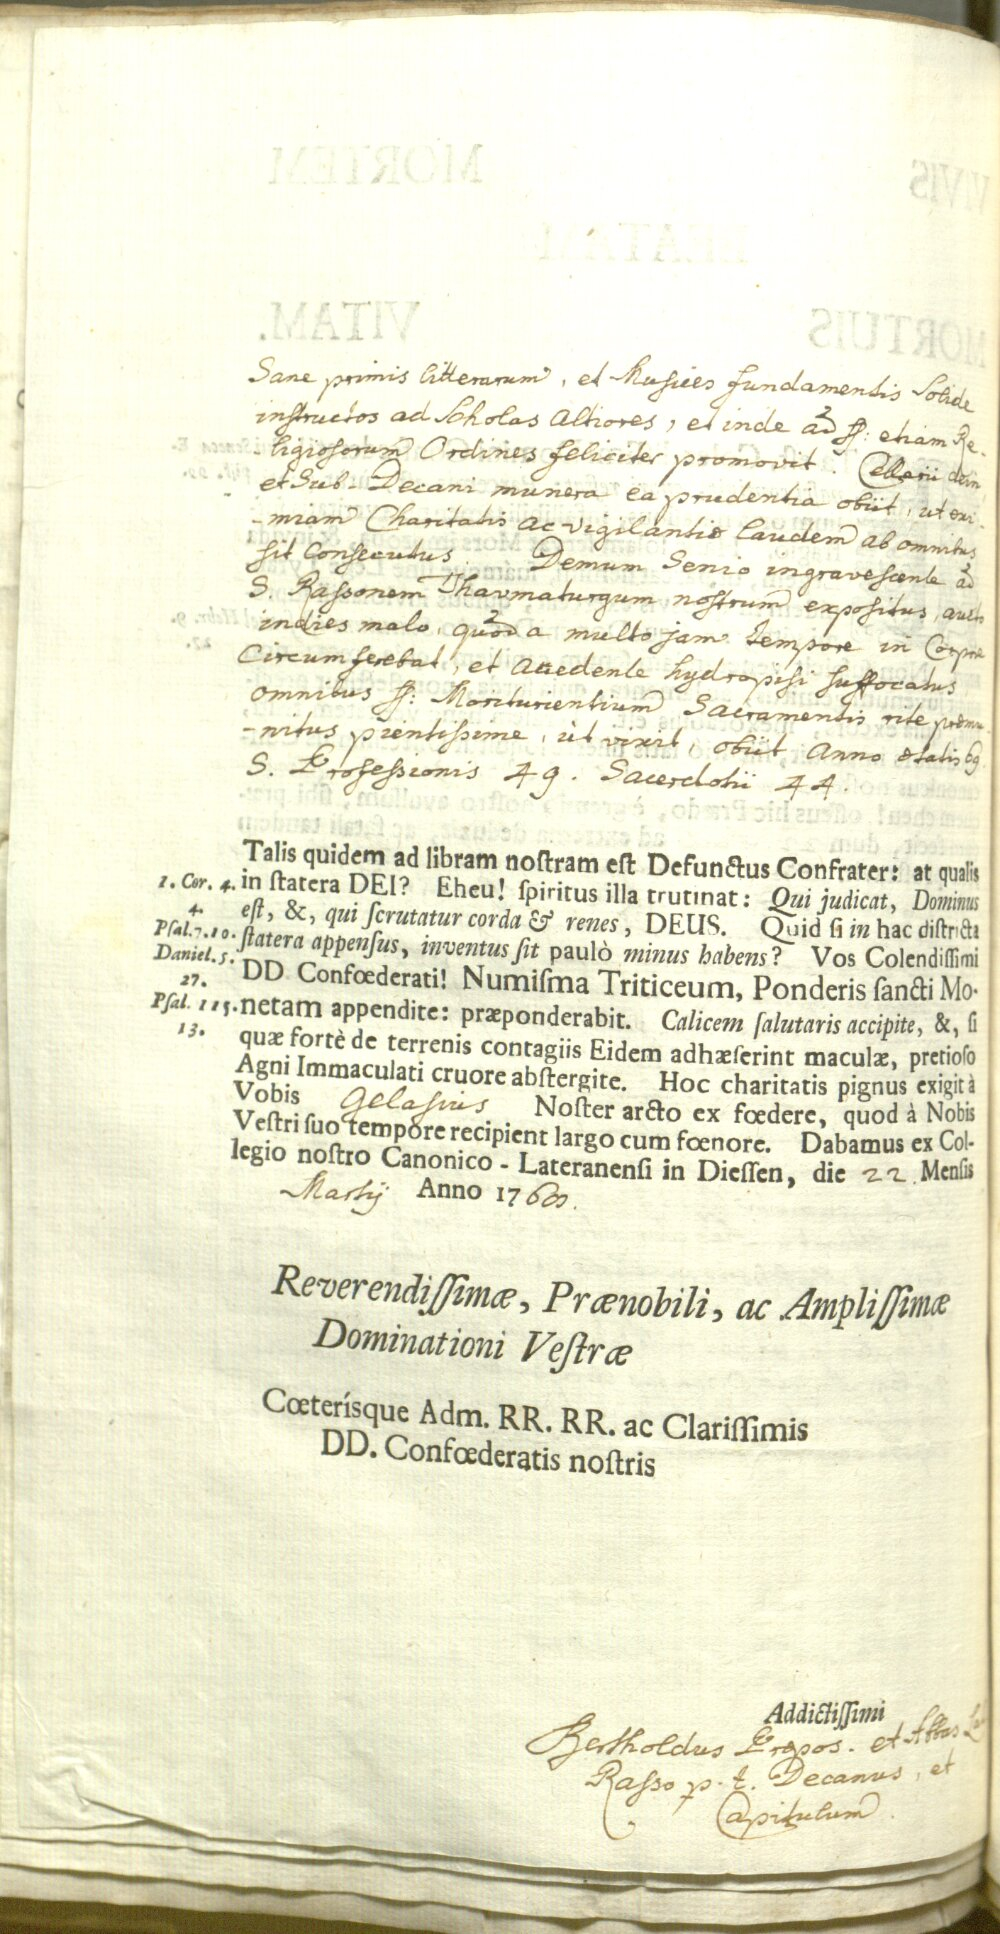 Sane primis litterarum, et Musices fundamentis solide
instructos ad Scholas Altiores, et inde ad SS: etiam Re-
ligiosorum Ordines feliciter promovit. Cellerii dein
et Sub-Decani munera ea prudentia obiit, ut exi-
-miam Charitatis ac vigilantiæ laudem ab omnibus
sit Consecutus. Demum Senio ingravescente ad
S. Rassonem Thaumaturgum nostrum expositus, aucto
indies malo, quod a multo jam tempore in Corpore
Circumferebat, et accedente hydropisi suffocatus
omnibus SS: Moriturientium Sacramentis rite præmu-
-nitus pientissime, ut vixit, obiit Anno ætatis 69
S. Professionis 49. Sacerdotii 44.
Talis quidem ad libram noſtram eſt Defunctus Confrater: at qualis
1. Cor. 4. in ſtatera DEI? Eheu! ſpiritus illa trutinat: Qui judicat, Dominus
4. eſt, &, qui ſcrutatur corda & renes, DEUS. Quid ſi in hac diſtricta
Pſal. 7. 10. ſtatera appenſus, inventus ſit paulò minus habens? Vos Colendiſſimi
Daniel. 5. 27. DD Confœderati! Numiſma Triticeum, Ponderis ſancti Mo-
Pſal. 115. 13. netam appendite: præponderabit. Calicem ſalutaris accipite, &, ſi
quæ fortè de terrenis contagiis Eidem adhæſerint maculæ, pretioſo
Agni Immaculati cruore abſtergite. Hoc charitatis pignus exigit à
Vobis Gelasius Noſter arcto ex fœdere, quod à Nobis
Veſtri ſuo tempore recipient largo cum fœnore. Dabamus ex Col-
legio noſtro Canonico-Lateranenſi in Dieſſen, die 22. Menſis
Martij Anno 1760.
Reverendiſſimæ, Prænobili, ac Ampliſſimæ
Dominationi Veſtræ
Cœterísque Adm. RR. RR. ac Clariſſimis
DD. Confœderatis noſtris
Addictiſſimi
Bertholdus Præpos. et Abbas
Rasso p. t. Decanus, et
Capitulum.